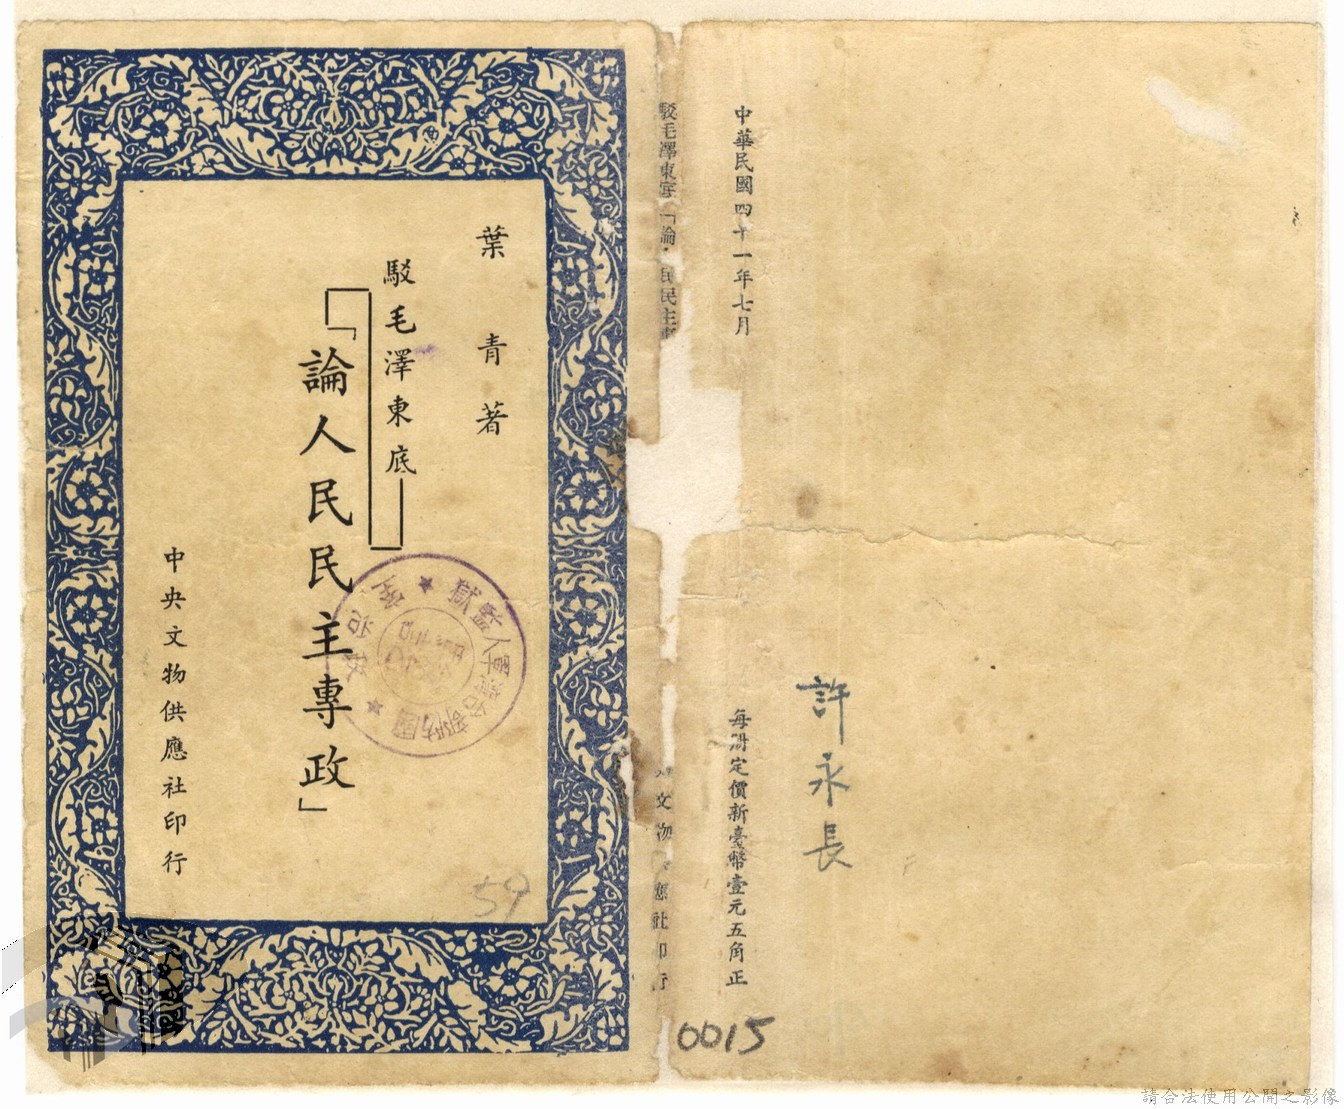 葉青著
駁毛澤東底
「論人民民主專政」
中央文物供應社印行
59
國防部臺灣軍人監獄
駁毛澤東底「論 民民主
文物 應社印行
中華民國四十一年七月
每冊定價新臺幣壹元五角正
許永長
0015
請合法使用公開之影像